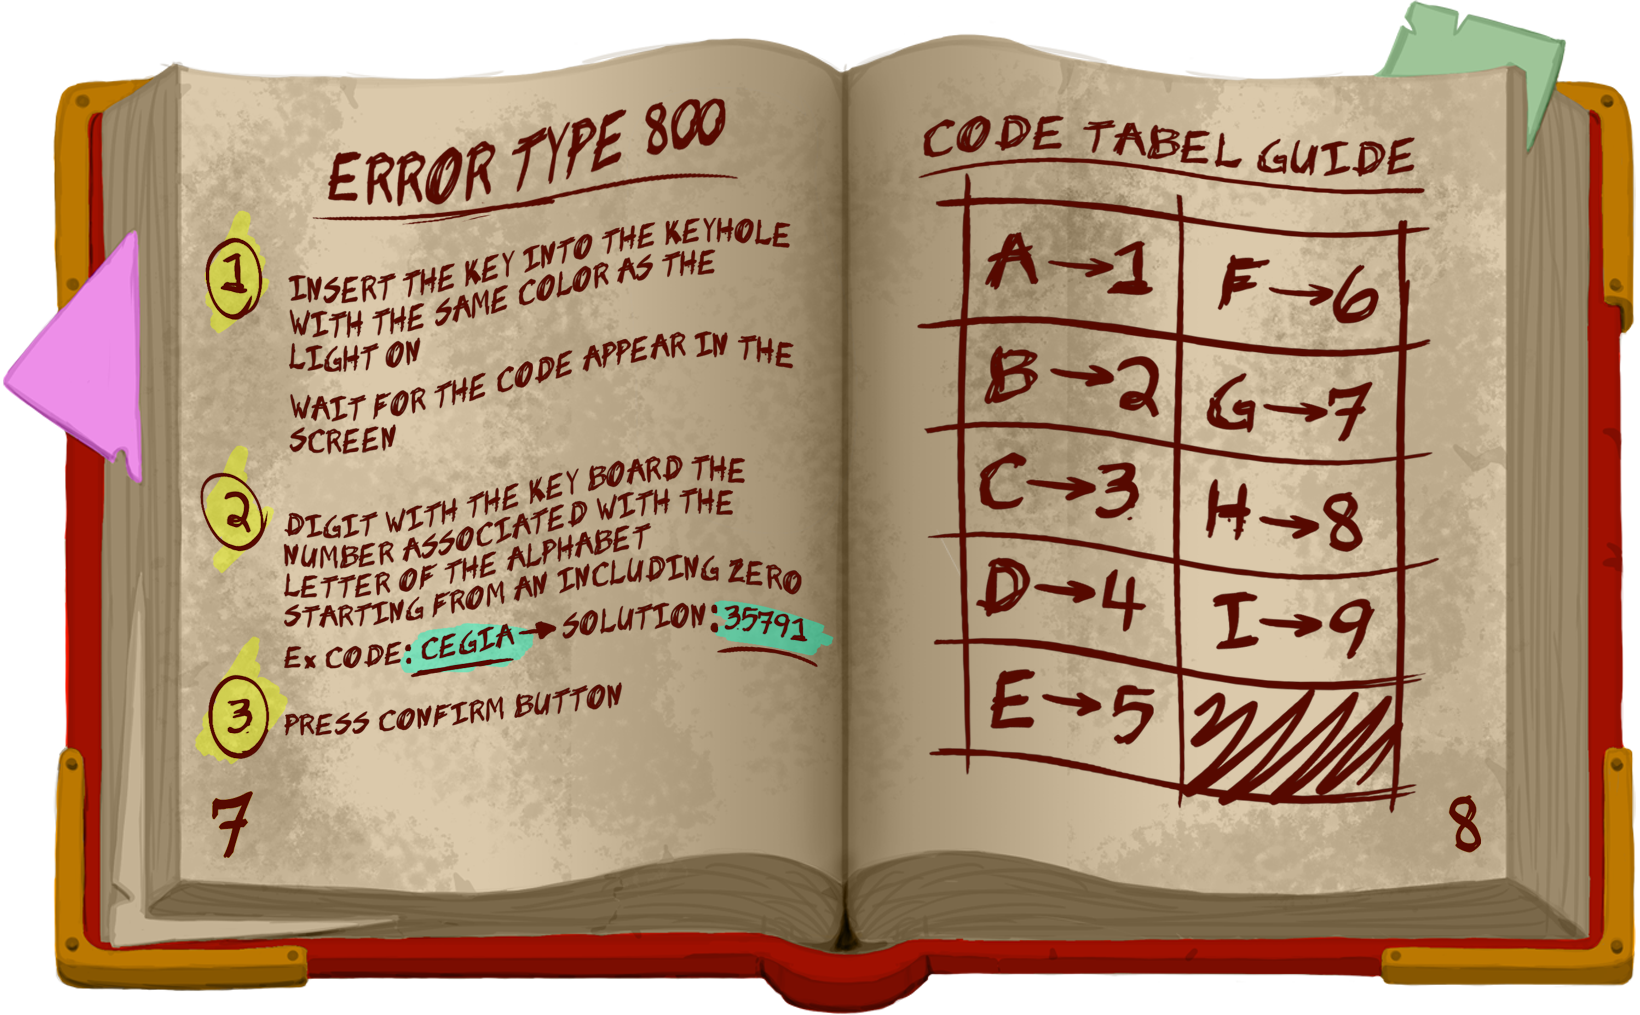 ERROR TYPE 800
1
INSERT THE KEY INTO THE KEYHOLE
WITH THE SAME COLOR AS THE
LIGHT ON
WAIT FOR THE CODE APPEAR IN THE
SCREEN
2
DIGIT WITH THE KEY BOARD THE
NUMBER ASSOCIATED WITH THE
LETTER OF THE ALPHABET
STARTING FROM AN INCLUDING ZERO
Ex CODE: CEGIA → SOLUTION: 35791
3
PRESS CONFIRM BUTTON
7
CODE TABEL GUIDE
A → 1 F → 6
B → 2 G → 7
C → 3 H → 8
D → 4 I → 9
E → 5
8